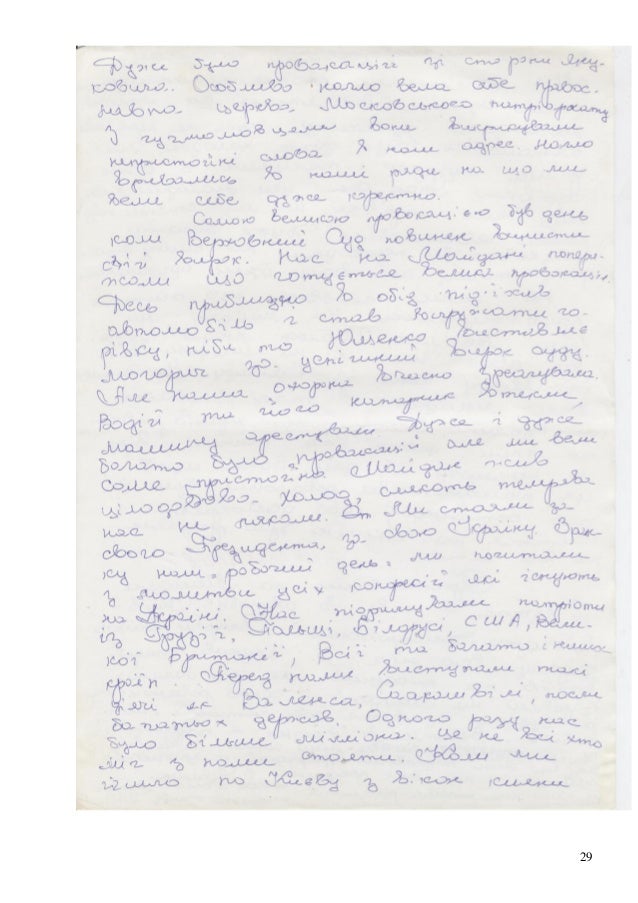 Дуже було провокацій зі сторони Яну-
ковича. Особливо нагло вела себе правос-
лавна церква Московського патріархату
З гучномовцями вони викрикували
непристойні слова в наш адрес. Нагло
вривались в наші ряди на що ми
вели себе дуже коректно.
Самою великою провокацією був день
коли Верховний Суд повинен винести
свій вирок. Нас на Майдані попере-
жали що готується велика провокація.
Десь приблизно в обід під'їхав
автомобіль і став вигружати го-
рівку, ніби то Ющенко виставляє
могорич за успішний вирок суду.
Але наша охорона вчасно зреагувала.
Водій та його напарник втекли,
машину арештували. Дуже і дуже
багато було провокацій але ми вели
саме пристойно. Майдан жив
цілодобово. Холод, слякоть темрява
нас не лякали. Ми стояли за
свого Президента, за свою Україну. Зран-
ку наш "робочий день" ми починали
з молитви усіх конфесій які існують
на Україні. Нас підтримували патріоти
із Грузії, Польщі, Білорусі, США, Вели-
кої Британії, та багато інших
країн. Перед нами виступали такі
діячі як Валенса, Саакашвілі, посли
багатьох держав. Одного разу нас
було більше мілліона. Це не всі хто
міг з нами стояти. Коли ми
ішло по Києву з вікон кияни
29